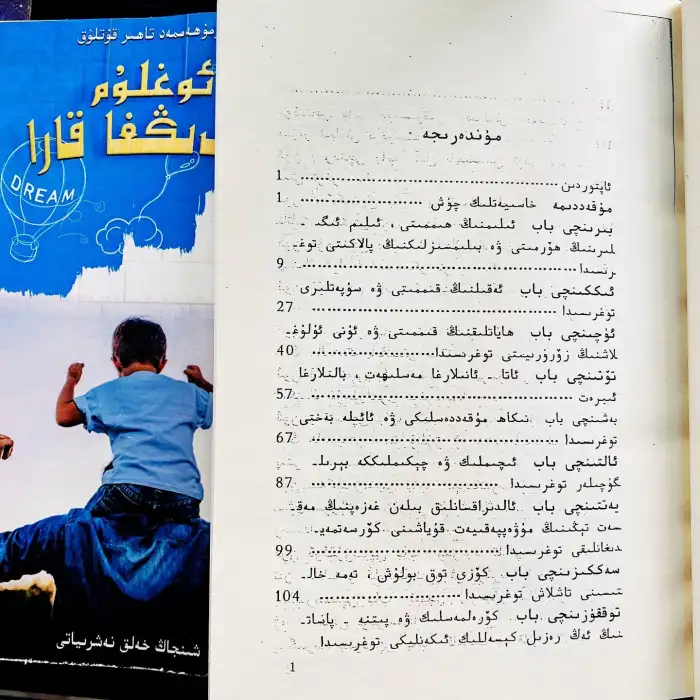 مۇھەممەد تاھىر قۇتلۇق
ئوغلۇم
قارا
DREAM
شىنجاڭ خەلق نەشرىياتى
مۇندەرىجە
ئاپتوردىن ........ 1
مۇقەددىمە خاسىيەتلىك چۈش ........ 1
بىرىنچى باب ئىلىمنىڭ ھىممىتى، ئىلىم ئىگى ـ
لىرىنىڭ ھۆرمىتى ۋە بىلىمسىزلىكنىڭ پالاكىتى توغ ـ
رىسىدا ........ 9
ئىككىنچى باب ئەقىلنىڭ قىممىتى ۋە سۈپەتلىرى
توغرىسىدا ........ 27
ئۈچىنچى باب ھاياتلىقنىڭ قىممىتى ۋە ئۇنى ئۇلۇغ ـ
لاشنىڭ زۆرۈرىيىتى توغرىسىدا ........ 40
تۆتىنچى باب ئاتا ـ ئانىلارغا مەسلىھەت، بالىلارغا
ئىبرەت ........ 57
بەشىنچى باب نىكاھ مۇقەددەسلىكى ۋە ئائىلە بەختى
توغرىسىدا ........ 67
ئالتىنچى باب ئىچىملىك ۋە چېكىملىككە بېرىل ـ
گۈچىلەر توغرىسىدا ........ 87
يەتتىنچى باب ئالدىراقسانلىق بىلەن غەزەپنىڭ مەق ـ
سەت تېڭىنىڭ مۇۋەپپەقىيەت قۇياشىنى كۆرسەتمەي ـ
دىغانلىقى توغرىسىدا ........ 99
سەككىزىنچى باب كۆزى توق بولۇش، تەمە خال ـ
تىسىنى تاشلاش توغرىسىدا ........ 104
توققۇزىنچى باب كۆرەلمەسلىك ۋە پىتنە ـ پاسات ـ
نىڭ ئەڭ رەزىل كېسەللىك ئىكەنلىكى توغرىسىدا
1